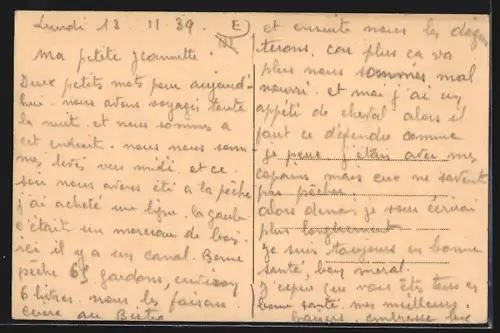 Lundi 13 11 39. E
Ma petite Jeannette.
Deux petits mots pour aujourd'
hui. nous avons voyagés toute
la nuit. et nous sommes a
cet endroit. nous nous som
mes levés vers midi. et ce
soir nous avons été a la pêche
j'ai acheté une ligne. la gaule
c'était un morceau de bois.
ici il y a un canal. Bonne
pêche 65 gardons, environ
6 litres. nous les faisons
cuire au Bistro
et ensuite nous les dégus
terons, car plus ça va
plus nous sommes mal
nourri. et moi j'ai un
appéti de cheval alors il
faut ce défendre comme
je peux j'étais avec mes
copains mais eux ne savent
pas pêcher.
alors demain je vous écrirai
plus longuement
Je suis toujours en bonne
santé, bon moral.
J'espère que vous êtes tous en
bonne santé. mes meilleurs
baisers,